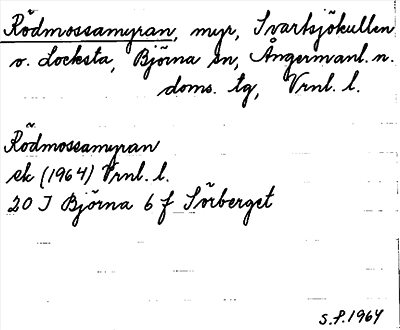 Rödmossamyran, myr, Svartsjökullen
v. Locksta, Björna sn, Ångermanl. n.
doms. tg, Vrnl. l.
Rödmossamyran
ek (1964) Vrnl. l.
20 I Björna 6 f Sörberget
S.P. 1964